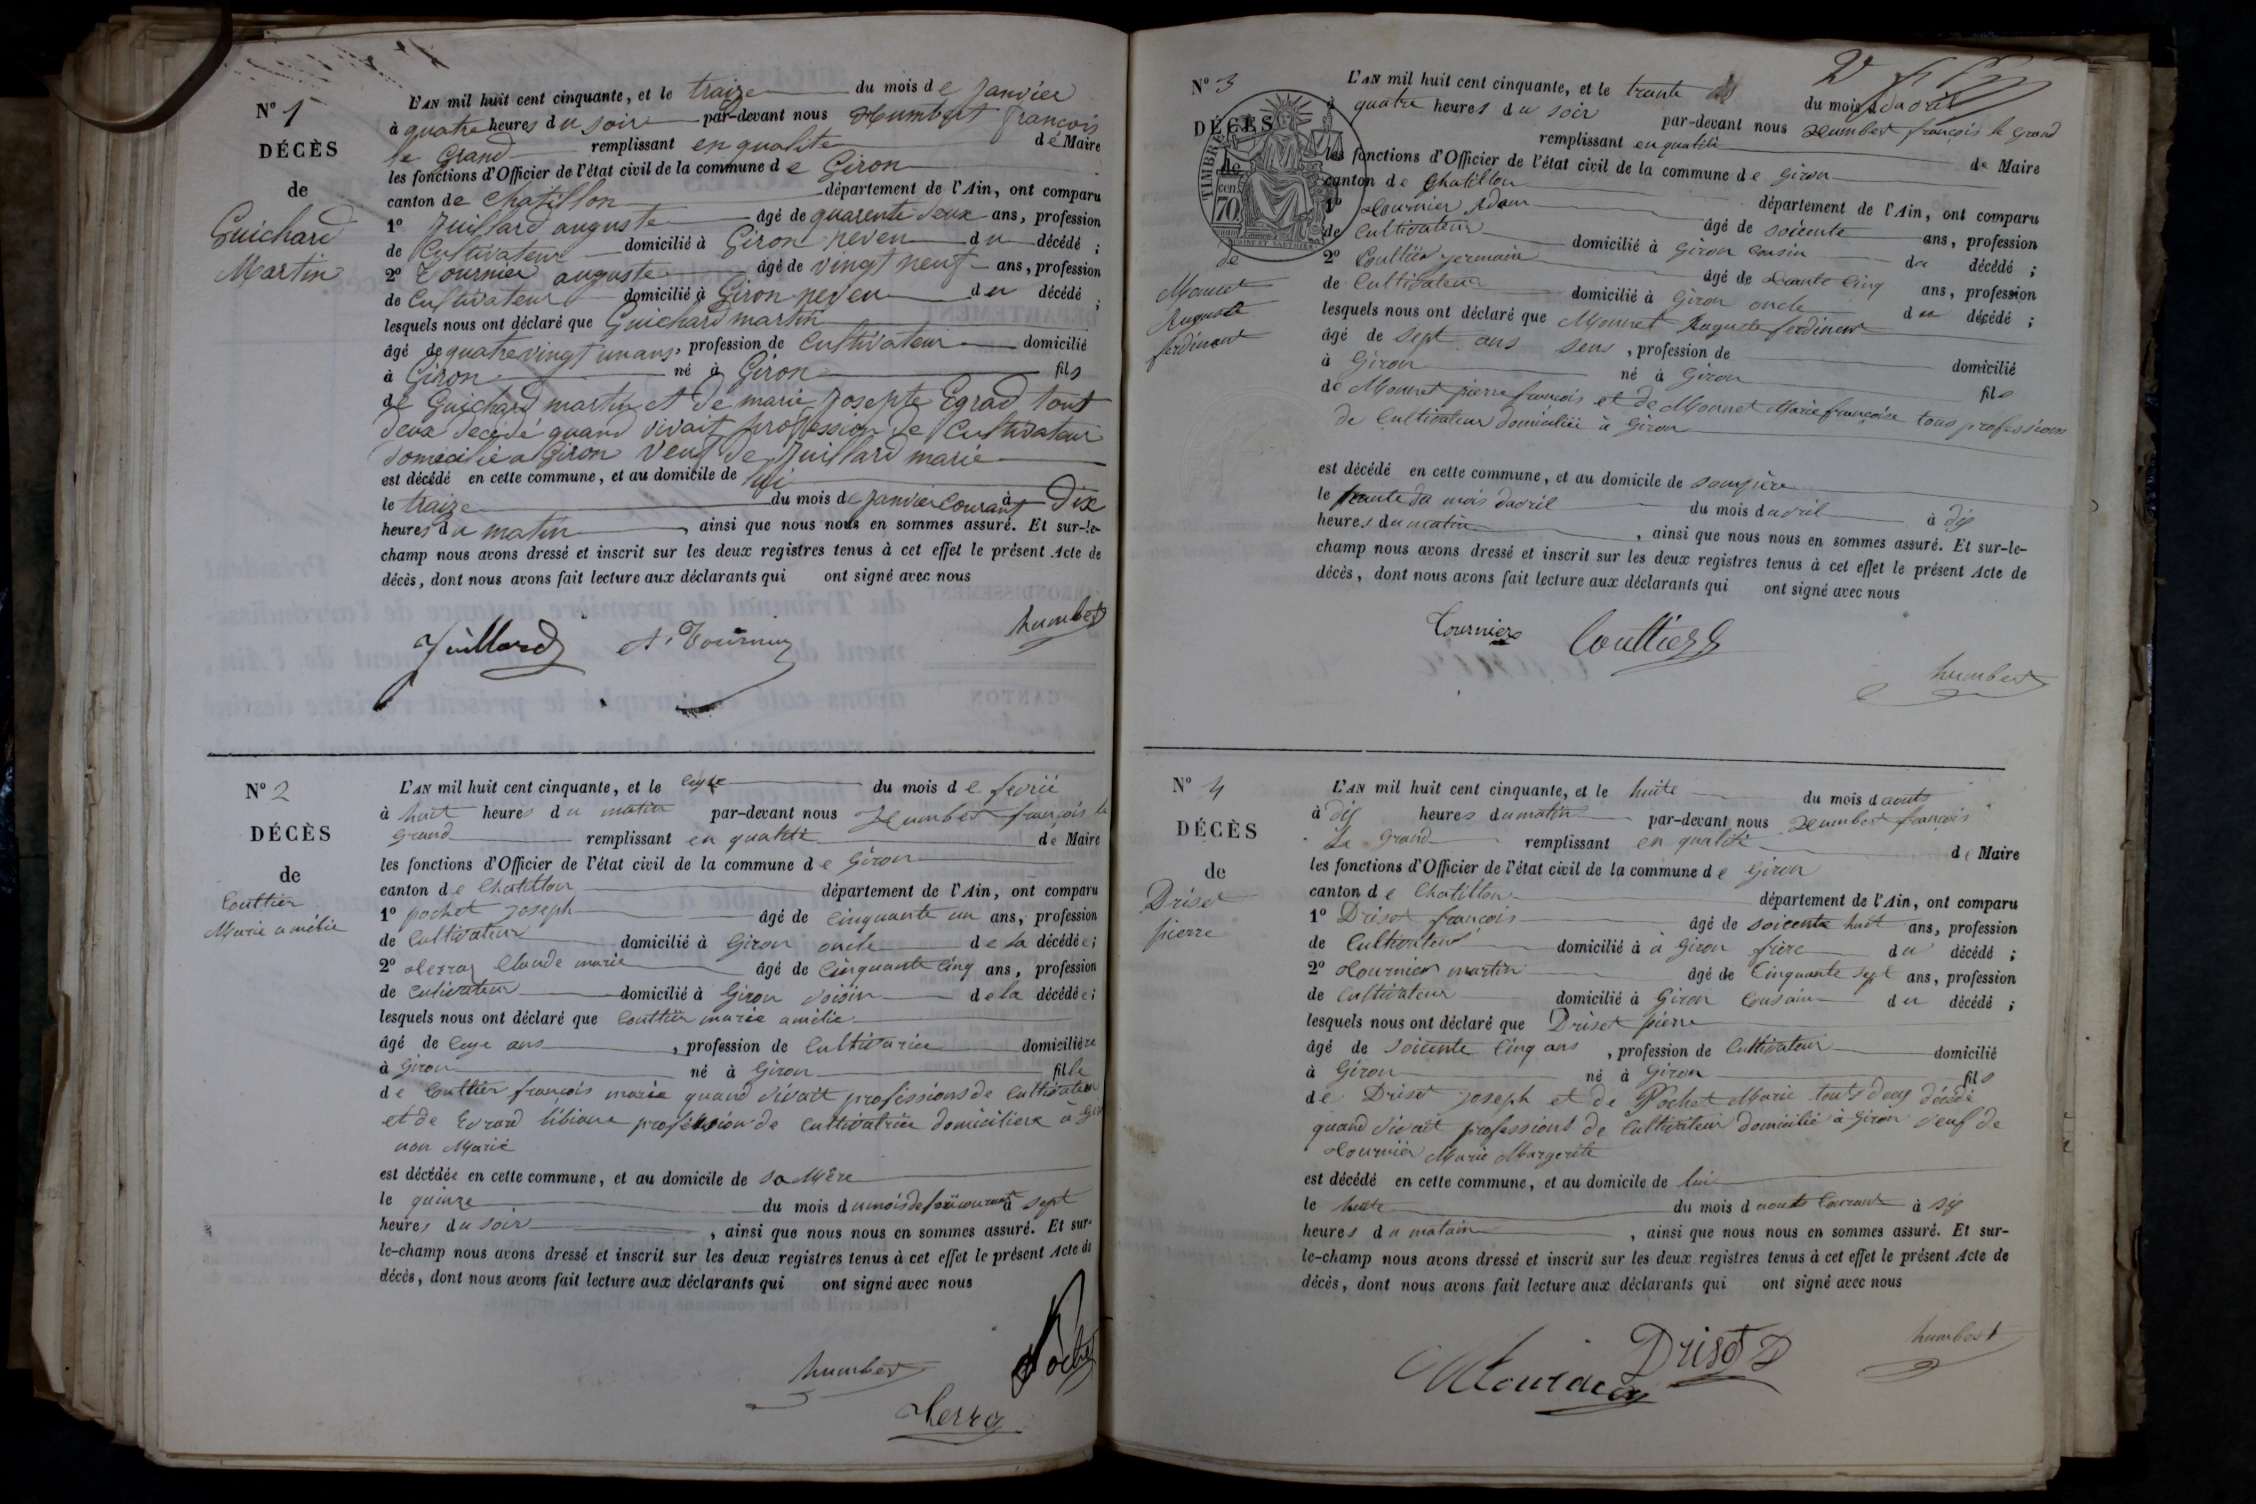 N° 1
DÉCÈS
de
Guichard
Martin
L'AN mil huit cent cinquante, et le traize du mois de Janvier
à quatre heures du soire par-devant nous humbert françois
le Grand remplissant en qualité de Maire
les fonctions d'Officier de l'état civil de la commune de Giron
canton de Chatillon département de l'Ain, ont comparu
1° Juillard auguste âgé de quarente deux ans, profession
de Cultivateur domicilié à Giron neveu du décédé ;
2° Tournier auguste âgé de vingt neuf ans, profession
de Cultivateur domicilié à Giron neveu du décédé ;
lesquels nous ont déclaré que Guichard martin
âgé de quatre vingt un ans, profession de Cultivateur domicilié
à Giron né à Giron fils
de Guichard martin et de marie Josepte Egrad tout
deux decédé quand vivait proffession de Cultivateur
domicilié a Giron veuf de Juillard marie
est décédé en cette commune, et au domicile de lui
le traize du mois de Janvier courant à Dix
heures du matin, ainsi que nous nous en sommes assuré. Et sur-le-
champ nous avons dressé et inscrit sur les deux registres tenus à cet effet le présent Acte de
décès, dont nous avons fait lecture aux déclarants qui ont signé avec nous
Juillard A. Tournier humbert
N° 2
DÉCÈS
de
Couttier
Marie amélie
L'AN mil huit cent cinquante, et le du mois de
à huit heures du matin par-devant nous humbert françois le
Grand remplissant en qualité de Maire
les fonctions d'Officier de l'état civil de la commune de Giron
canton de Chatillon département de l'Ain, ont comparu
1° pochet Joseph âgé de cinquante un ans, profession
de Cultivateur domicilié à Giron oncle de la décédée ;
2° Claude marie âgé de Cinquante Cinq ans, profession
de Cultivateur domicilié à Giron voisin de la décédée ;
lesquels nous ont déclaré que Couttier marie amélie
âgé de ans, profession de Cultivatrice domicilière
à Giron né à Giron fille
de Couttier françois marie quand vivait professions de Cultivateur
et de profession de Cultivatrice domicilière à
non Marié
est décédée en cette commune, et au domicile de sa Mère
le quinze du mois du mois de courant à sept
heures du soir, ainsi que nous nous en sommes assuré. Et sur-
le-champ nous avons dressé et inscrit sur les deux registres tenus à cet effet le présent Acte de
décès, dont nous avons fait lecture aux déclarants qui ont signé avec nous
humbert Pochet
N° 3
DÉCÈS
de
TIMBRE
70
de
Mounet
Auguste
ferdinant
L'AN mil huit cent cinquante, et le trante du mois davril
à quatre heures du soir par-devant nous humbert françois le Grand
remplissant en qualité de Maire
les fonctions d'Officier de l'état civil de la commune de Giron
canton de Chatillon département de l'Ain, ont comparu
1° Tournier Adam âgé de soicente ans, profession
de Cultivateur domicilié à Giron cousin du décédé ;
2° Couttier germain âgé de Cinq ans, profession
de Cultivateur domicilié à Giron oncle du décédé ;
lesquels nous ont déclaré que Mounet Auguste ferdinent
âgé de sept ans sens, profession de domicilié
à Giron né à Giron fils
de Mounet pierre françois et de Mounet Marie françoise tous professions
de Cultivateur domiciliée à Giron
est décédé en cette commune, et au domicile de son père
le trante du mois davril du mois davril à dix
heures du matin, ainsi que nous nous en sommes assuré. Et sur-le-
champ nous avons dressé et inscrit sur les deux registres tenus à cet effet le présent Acte de
décès, dont nous avons fait lecture aux déclarants qui ont signé avec nous
Tournier Couttier humbert
N° 4
DÉCÈS
de
Driset
pierre
L'AN mil huit cent cinquante, et le huite du mois d'aouts
à dix heures du matin par-devant nous humbert françois
Le Grand remplissant en qualité de Maire
les fonctions d'Officier de l'état civil de la commune de Giron
canton de Chatillon département de l'Ain, ont comparu
1° Driset françois âgé de soicente huit ans, profession
de Cultivateur domicilié à à Giron frère du décédé ;
2° Tournier martin âgé de Cinquante sept ans, profession
de Cultivateur domicilié à Giron Cousain du décédé ;
lesquels nous ont déclaré que Driset pierre
âgé de soicente Cinq ans, profession de Cultivateur domicilié
à Giron né à Giron fils
de Driset Joseph et de Pochet Marie touts deux décédé
quand vivait professions de Cultivateur domicilié à Giron veuf de
Tournier Marie Margerite
est décédé en cette commune, et au domicile de lui
le huite du mois d aouts Courant à six
heures du matain, ainsi que nous nous en sommes assuré. Et sur-
le-champ nous avons dressé et inscrit sur les deux registres tenus à cet effet le présent Acte de
décès, dont nous avons fait lecture aux déclarants qui ont signé avec nous
MTournier Driset humbert